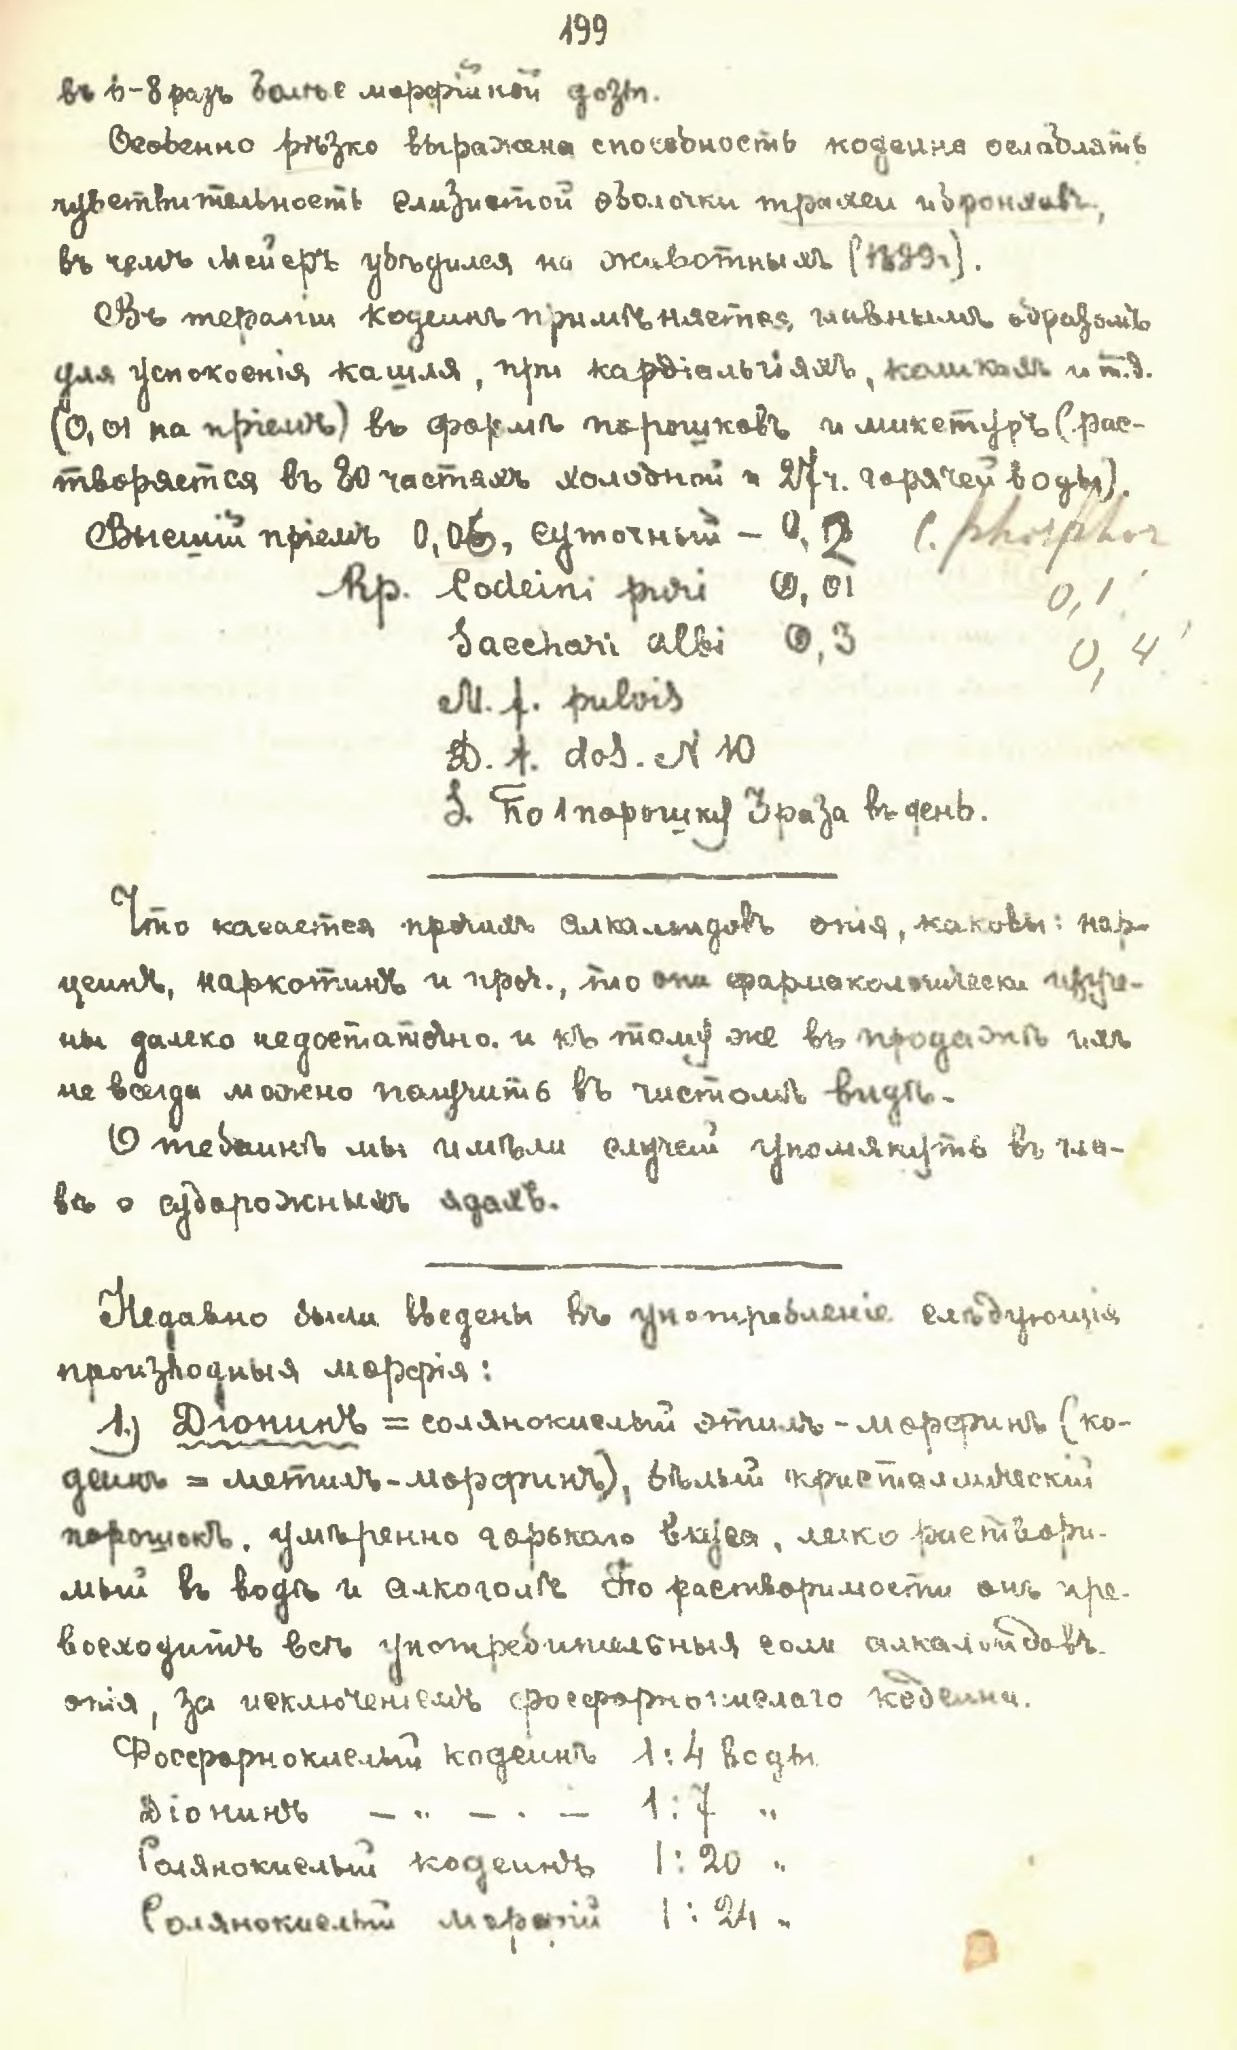 199
въ 6-8 разъ больѣе морфійной дозы.
Особенно рѣзко выражена способность кодеина ослаблять
чувствительность слизистой оболочки трахеи и бронховъ,
въ чемъ Мейеръ убѣдился на животныхъ
Въ терапіи кодеинъ примѣняется главнымъ образомъ
для успокоенія кашля, при кардіальгіяхъ, коликахъ и т.д.
(0,01 на пріемъ) въ формѣ порошковъ и микстуръ (рас-
творяется въ 80 частяхъ холодной и 27 ч. горячей воды).
Высшій пріемъ 0,05, суточный – 0,2 C. phosphor
Rp. Codeini puri 0,01 0,1
Sacchari albi 0,3 0,4
M. f. pulvis
D. t. dos. N 10
S. По 1 порошку 3 раза въ день.
Что касается прочихъ алкалоидовъ опія, каковы: нар-
цеинъ, наркотинъ и проч., то они фармакологически изуче-
ны далеко недостаточно. и къ тому же въ продажѣ ихъ
не всегда можно получить въ чистомъ видѣ.
О тебаинѣ мы имѣли случай упомянуть въ гла-
вѣ о судорожныхъ ядахъ.
Недавно были введены въ употребленіе слѣдующія
производныя морфія:
1.) Діонинъ = солянокислый этилъ-морфинъ (ко-
деинъ = метилъ-морфинъ), бѣлый кристаллическій
порошокъ, умѣренно горькаго вкуса, легко раствори-
мый въ водѣ и алкоголѣ По растворимости онъ пре-
восходитъ всѣ употребительныя соли алкалоидовъ
опія, за исключеніемъ фосфорнокислаго кодеина.
Фосфорнокислый кодеинъ 1:4 воды
Діонинъ – " – . – 1:7 "
Солянокислый кодеинъ 1:20 "
Солянокислый морфій 1:24 "